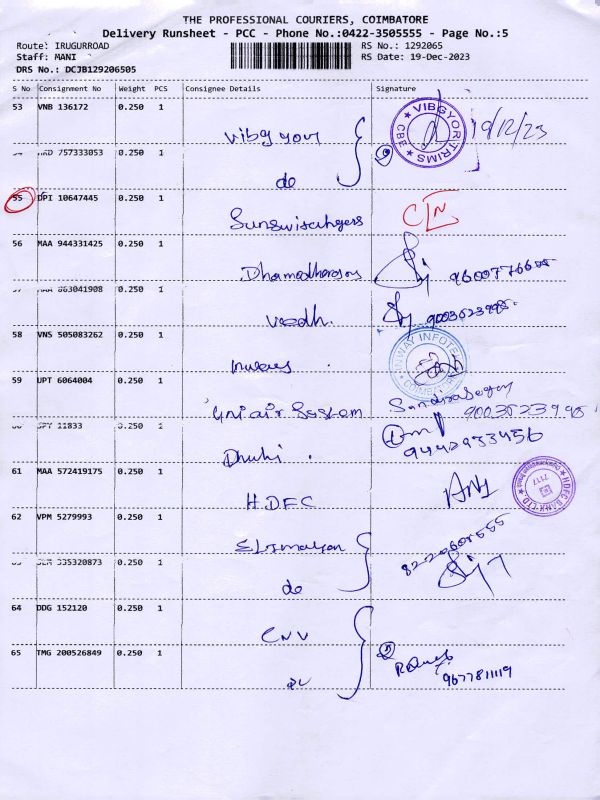 THE PROFESSIONAL COURIERS, COIMBATORE
Delivery Runsheet - PCC - Phone No.:0422-3505555 - Page No.:5
Route: IRUGURROAD RS No.: 1292065
Staff: MANI RS Date: 19-Dec-2023
DRS No.: DCJB129206505
S No Consignment No Weight PCS Consignee Details Signature
53 VNB 136172 0.250 1
VIBGYOR TRIMS CBE
19/12/23
757333053 0.250 1
do
55 DPI 10647445 0.250 1
56 MAA 944331425 0.250 1
863041908 0.250 1
Vedh.
9003523985
58 VNS 505083262 0.250 1
INWAY INFOTECH COIMBATORE
59 UPT 6064004 0.250 1
Uni air System
9003523985
11833 0.250 2
Dhuhi.
9442933456
61 MAA 572419175 0.250 1
HDFC
HDFC BANK LTD 7117
62 VPM 5279993 0.250 1
335320873 0.250 1
do
64 DDG 152120 0.250 1
CNV
65 TMG 200526849 0.250 1
9677811119